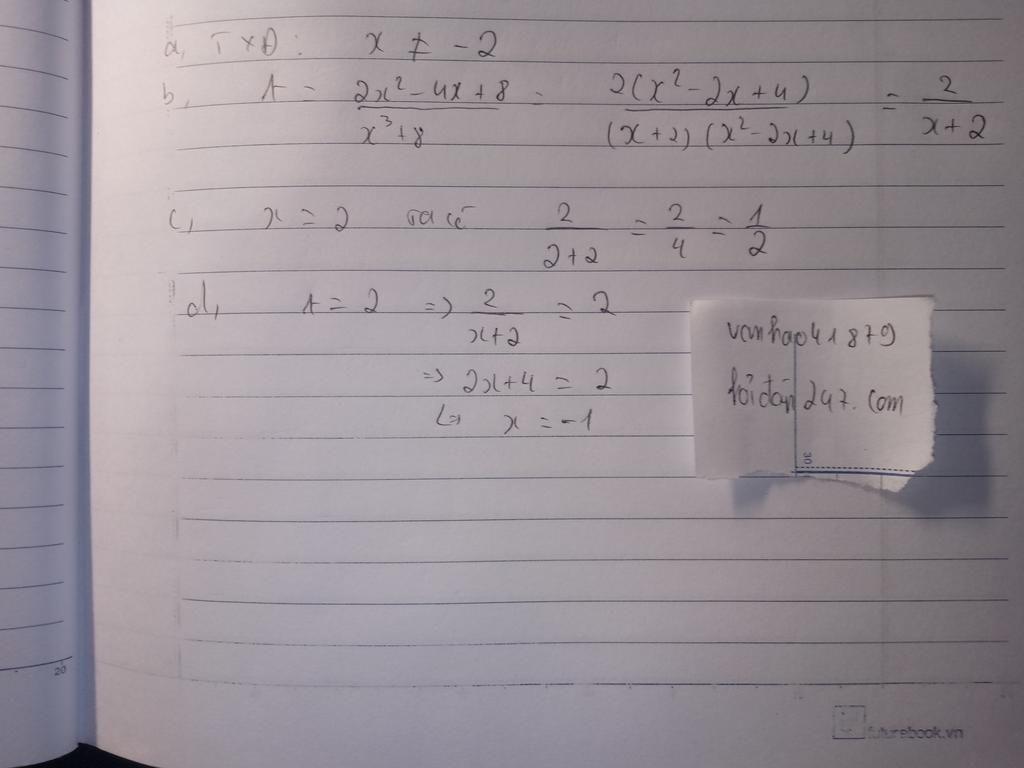 a, TXĐ: x ≠ -2
b, A = (2x² - 4x + 8)/(x³ + 8) = 2(x² - 2x + 4)/((x + 2)(x² - 2x + 4)) = 2/(x + 2)
c, x = 2 ta có 2/(2+2) = 2/4 = 1/2
d, A = 2 => 2/(x+2) = 2
=> 2x+4 = 2
<=> x = -1
vanhao41879
hỏiđáp247.com
30
20
futurebook.vn